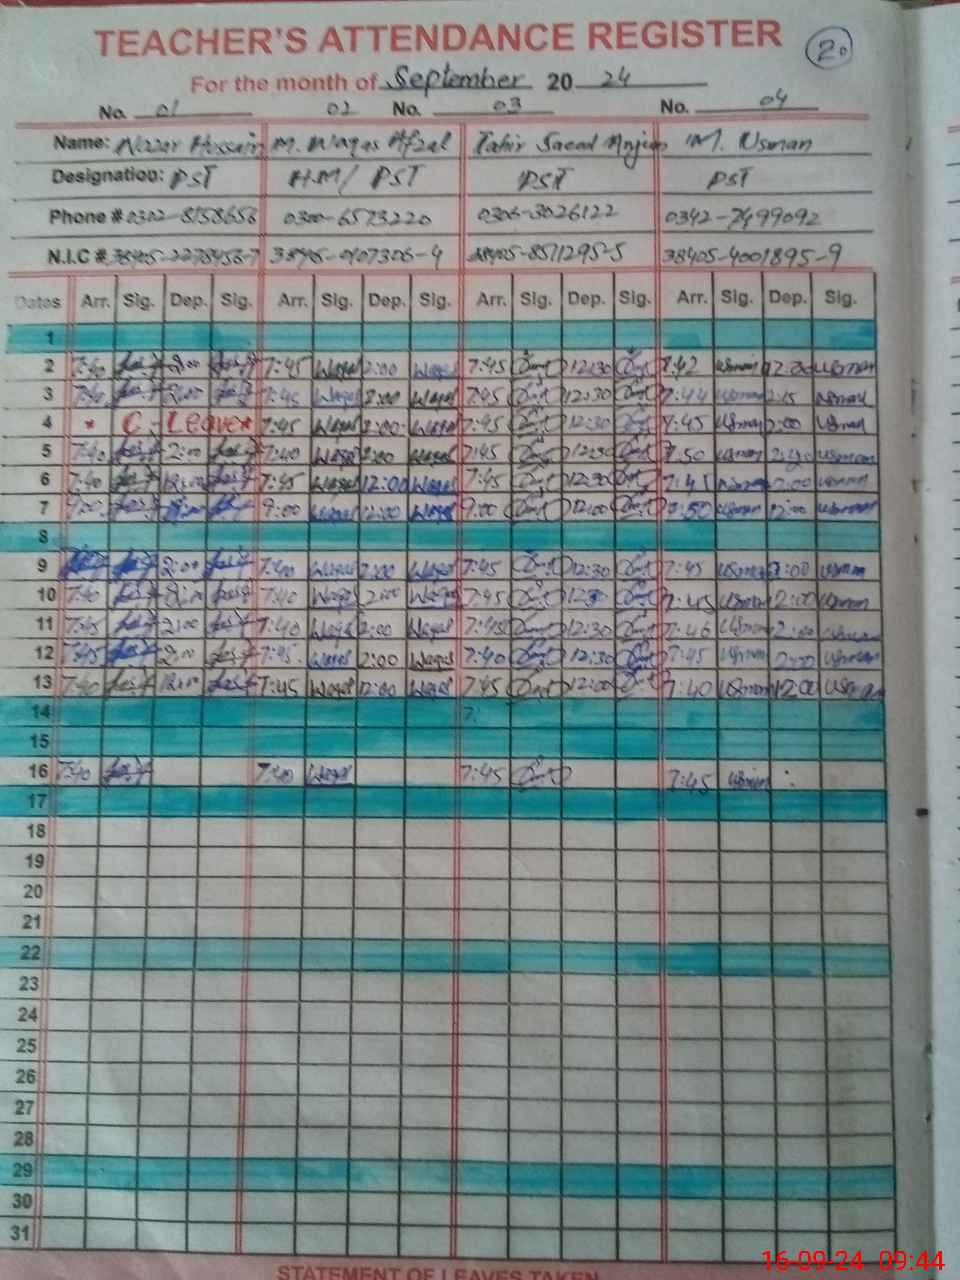 TEACHER'S ATTENDANCE REGISTER
20
For the month of September 20 24
No. 01 02 No. 03 No. 04
Name: Nazar Hussain M. Waqas Afzal Tahir Saeed Anjum M. Usman
Designation: PST H.M/ PST PST PST
Phone # 0302-8158658 0300-6573220 0306-3026122 0342-7499092
N.I.C # 38405-2278456-7 38405-0407306-4 38405-8511295-5 38405-4001895-9
Dates Arr. Sig. Dep. Sig. Arr. Sig. Dep. Sig. Arr. Sig. Dep. Sig. Arr. Sig. Dep. Sig.
1
2 7:40 2:00 7:45 Waqas 2:00 Waqas 7:45 12:30 7:42 Usman Usman
3 7:40 2:00 7:45 Waqas 2:00 Waqas 7:45 12:30 7:44 Usman 2:15 Usman
4 * C-Leave * 7:45 Waqas 2:00 Waqas 7:45 12:30 7:45 Usman 2:00 Usman
5 7:40 2:00 7:40 Waqas 2:00 Waqas 7:45 12:30 7:50 Usman Usman
6 7:40 12:00 7:45 Waqas 12:00 Waqas 7:45 12:30 7:45 Usman Usman
7 9:00 9:00 Waqas 12:00 Waqas 9:00 12:00 Usman 12:00 Usman
8
9 2:00 7:40 Waqas 2:00 Waqas 7:45 12:30 7:45 Usman 2:00 Usman
10 7:40 2:00 7:40 Waqas 2:00 Waqas 7:45 12:30 7:45 Usman 2:00 Usman
11 7:45 2:00 7:40 Waqas 2:00 Waqas 7:45 12:30 7:46 Usman 2:00 Usman
12 7:45 2:00 7:45 Waqas 2:00 Waqas 7:40 12:30 7:45 Usman 2:00 Usman
13 7:40 12:00 7:45 Waqas 12:00 Waqas 7:45 12:00 7:40 Usman 12:00 Usman
14 7:
15
16 7:40 7:40 Waqas 7:45 7:45 Usman :
17
18
19
20
21
22
23
24
25
26
27
28
29
30
31
STATEMENT OF LEAVES TAKEN
16-09-24 09:44